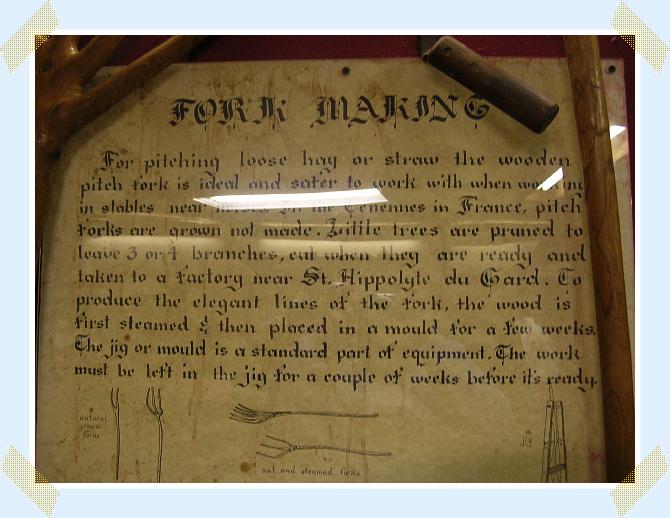 FORK MAKING
For pitching loose hay or straw the wooden
pitch fork is ideal and safer to work with when working
in stables near horses. In the Cevennes in France, pitch
forks are grown not made. Zilile trees are pruned to
leave 3 or 4 branches, cut when they are ready and
taken to a factory near St. Hippolyte du Gard. To
produce the elegant lines of the fork, the wood is
first steamed & then placed in a mould for a few weeks.
The jig or mould is a standard part of equipment. The work
must be left in the jig for a couple of weeks before it's ready.
natural
grown
forks
cut and steamed forks
a
jig